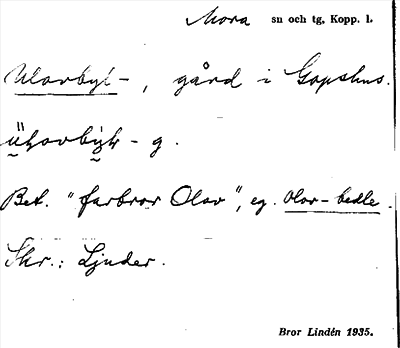 Mora sn och tg, Kopp. l.
Ulovbyl-, gård i Gopshus.
g.
Bet. "farbror Olov", eg. Olov-bedle.
Skr.: Ljuder.
Bror Lindén 1935.